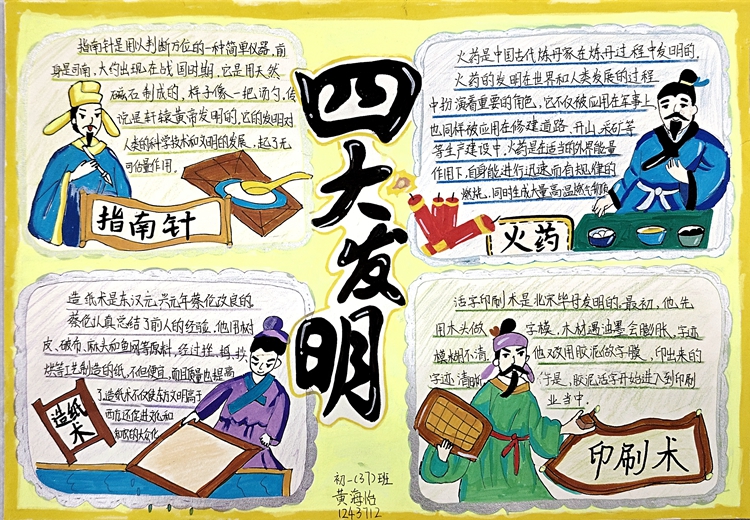 四大发明
指南针是用以判断方位的一种简单仪器,前
身是司南,大约出现在战国时期,它是用天然
磁石制成的,样子像一把汤勺,传
说是轩辕黄帝发明的,它的发明对
人类的科学技术和文明的发展,起了无
可估量作用.
指南针
火药是中国古代炼丹家在炼丹过程中发明的,
火药的发明在世界和人类发展的过程
中扮演着重要的角色,它不仅被应用在军事上
也同样被应用在修建道路,开山,采矿等
等生产建设中,火药是在适当的外界能量
作用下,自身能进行迅速而有规律的
燃烧,同时生成大量高温燃气物质
火药
造纸术是东汉元兴元年蔡伦改良的
蔡伦认真总结了前人的经验,他用树
皮,破布,麻头和鱼网等原料,经过挫,捣,抄,
烘等工艺制造的纸,不但便宜,而且质量也提高
了,造纸术不仅使东方文明高于
西方还促进文化和
知识的大众化
造纸术
活字印刷术是北宋毕昇发明的,最初,他先
用木头做字模,木材遇油墨会膨胀,字迹
模糊不清,他又改用胶泥做字模,印出来的
字迹清晰,于是,胶泥活字开始进入到印刷
业当中.
印刷术
初一(37)班
黄海怡
1243712